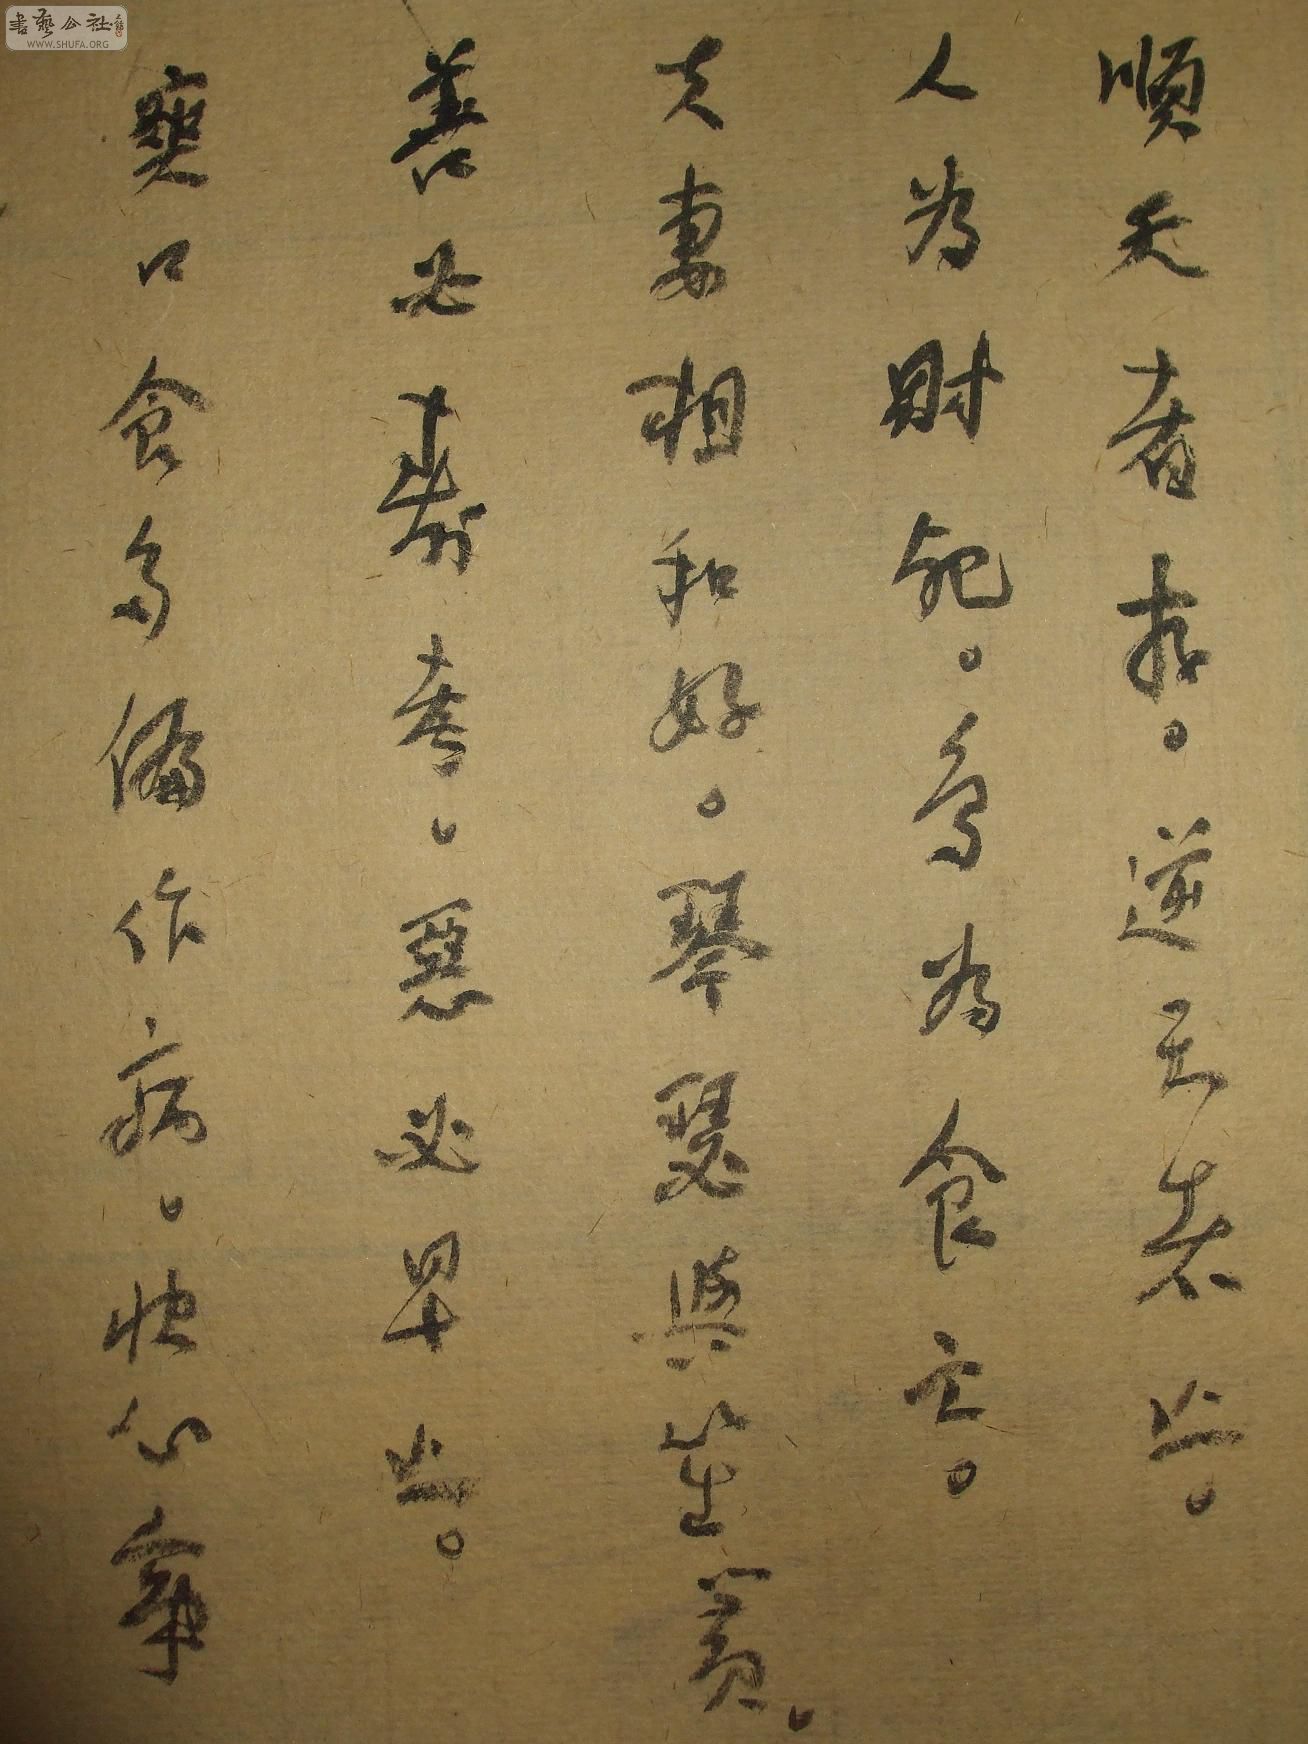 順天者存。逆天者亡。
人為財死。鳥為食亡。
夫妻相和好。琴瑟與笙簧。
善必壽考。惡必早亡。
爽口食多偏作病。快心事
書藝公社
WWW.SHUFA.ORG